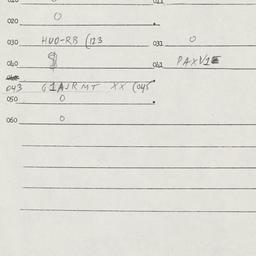 020 0
030 HUO-RB (123 031 0
040 061 PAXV1E
043 G1AJRMT XX (045
050 0
060 0